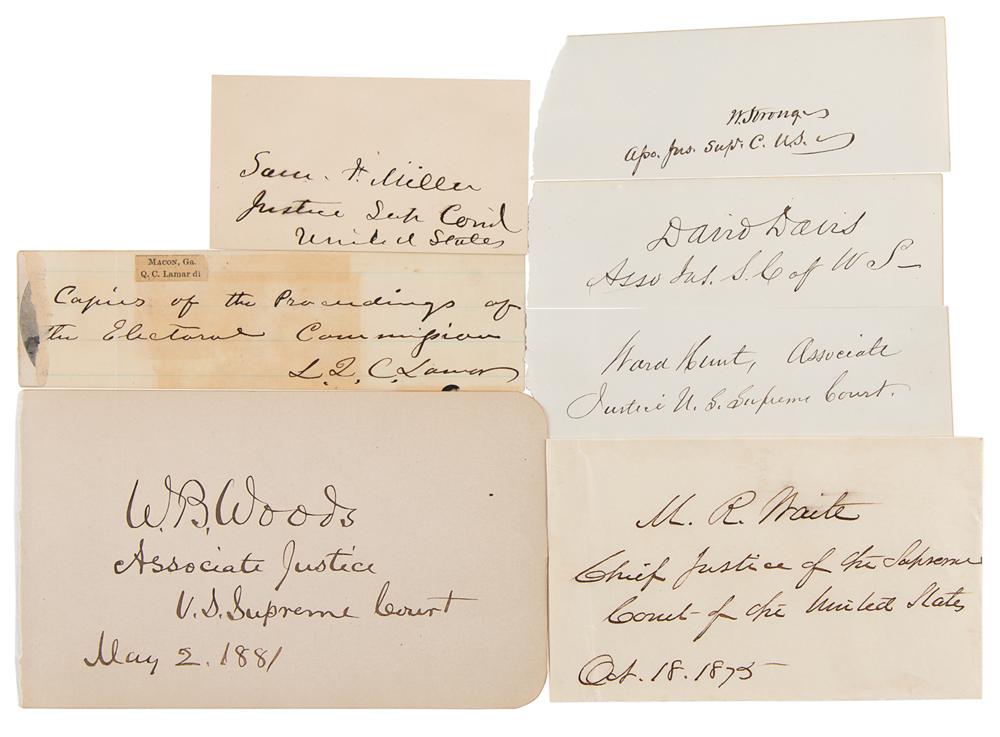 Sam. F. Miller
Justice Sup Court
United States
Macon, Ga.
Q. C. Lamar di
Copies of the Proceedings of
the Electoral Commission
L. Q. C. Lamar
W. B. Woods
Associate Justice
U. S. Supreme Court
May 2. 1881
W. Strong
Asso. Jus. Sup. C. U.S.
David Davis
Asso Jus. S. C of U S
Ward Hunt, Associate
Justice U. S. Supreme Court.
M. R. Waite
Chief Justice of the Supreme
Court of the United States
Oct. 18. 1875